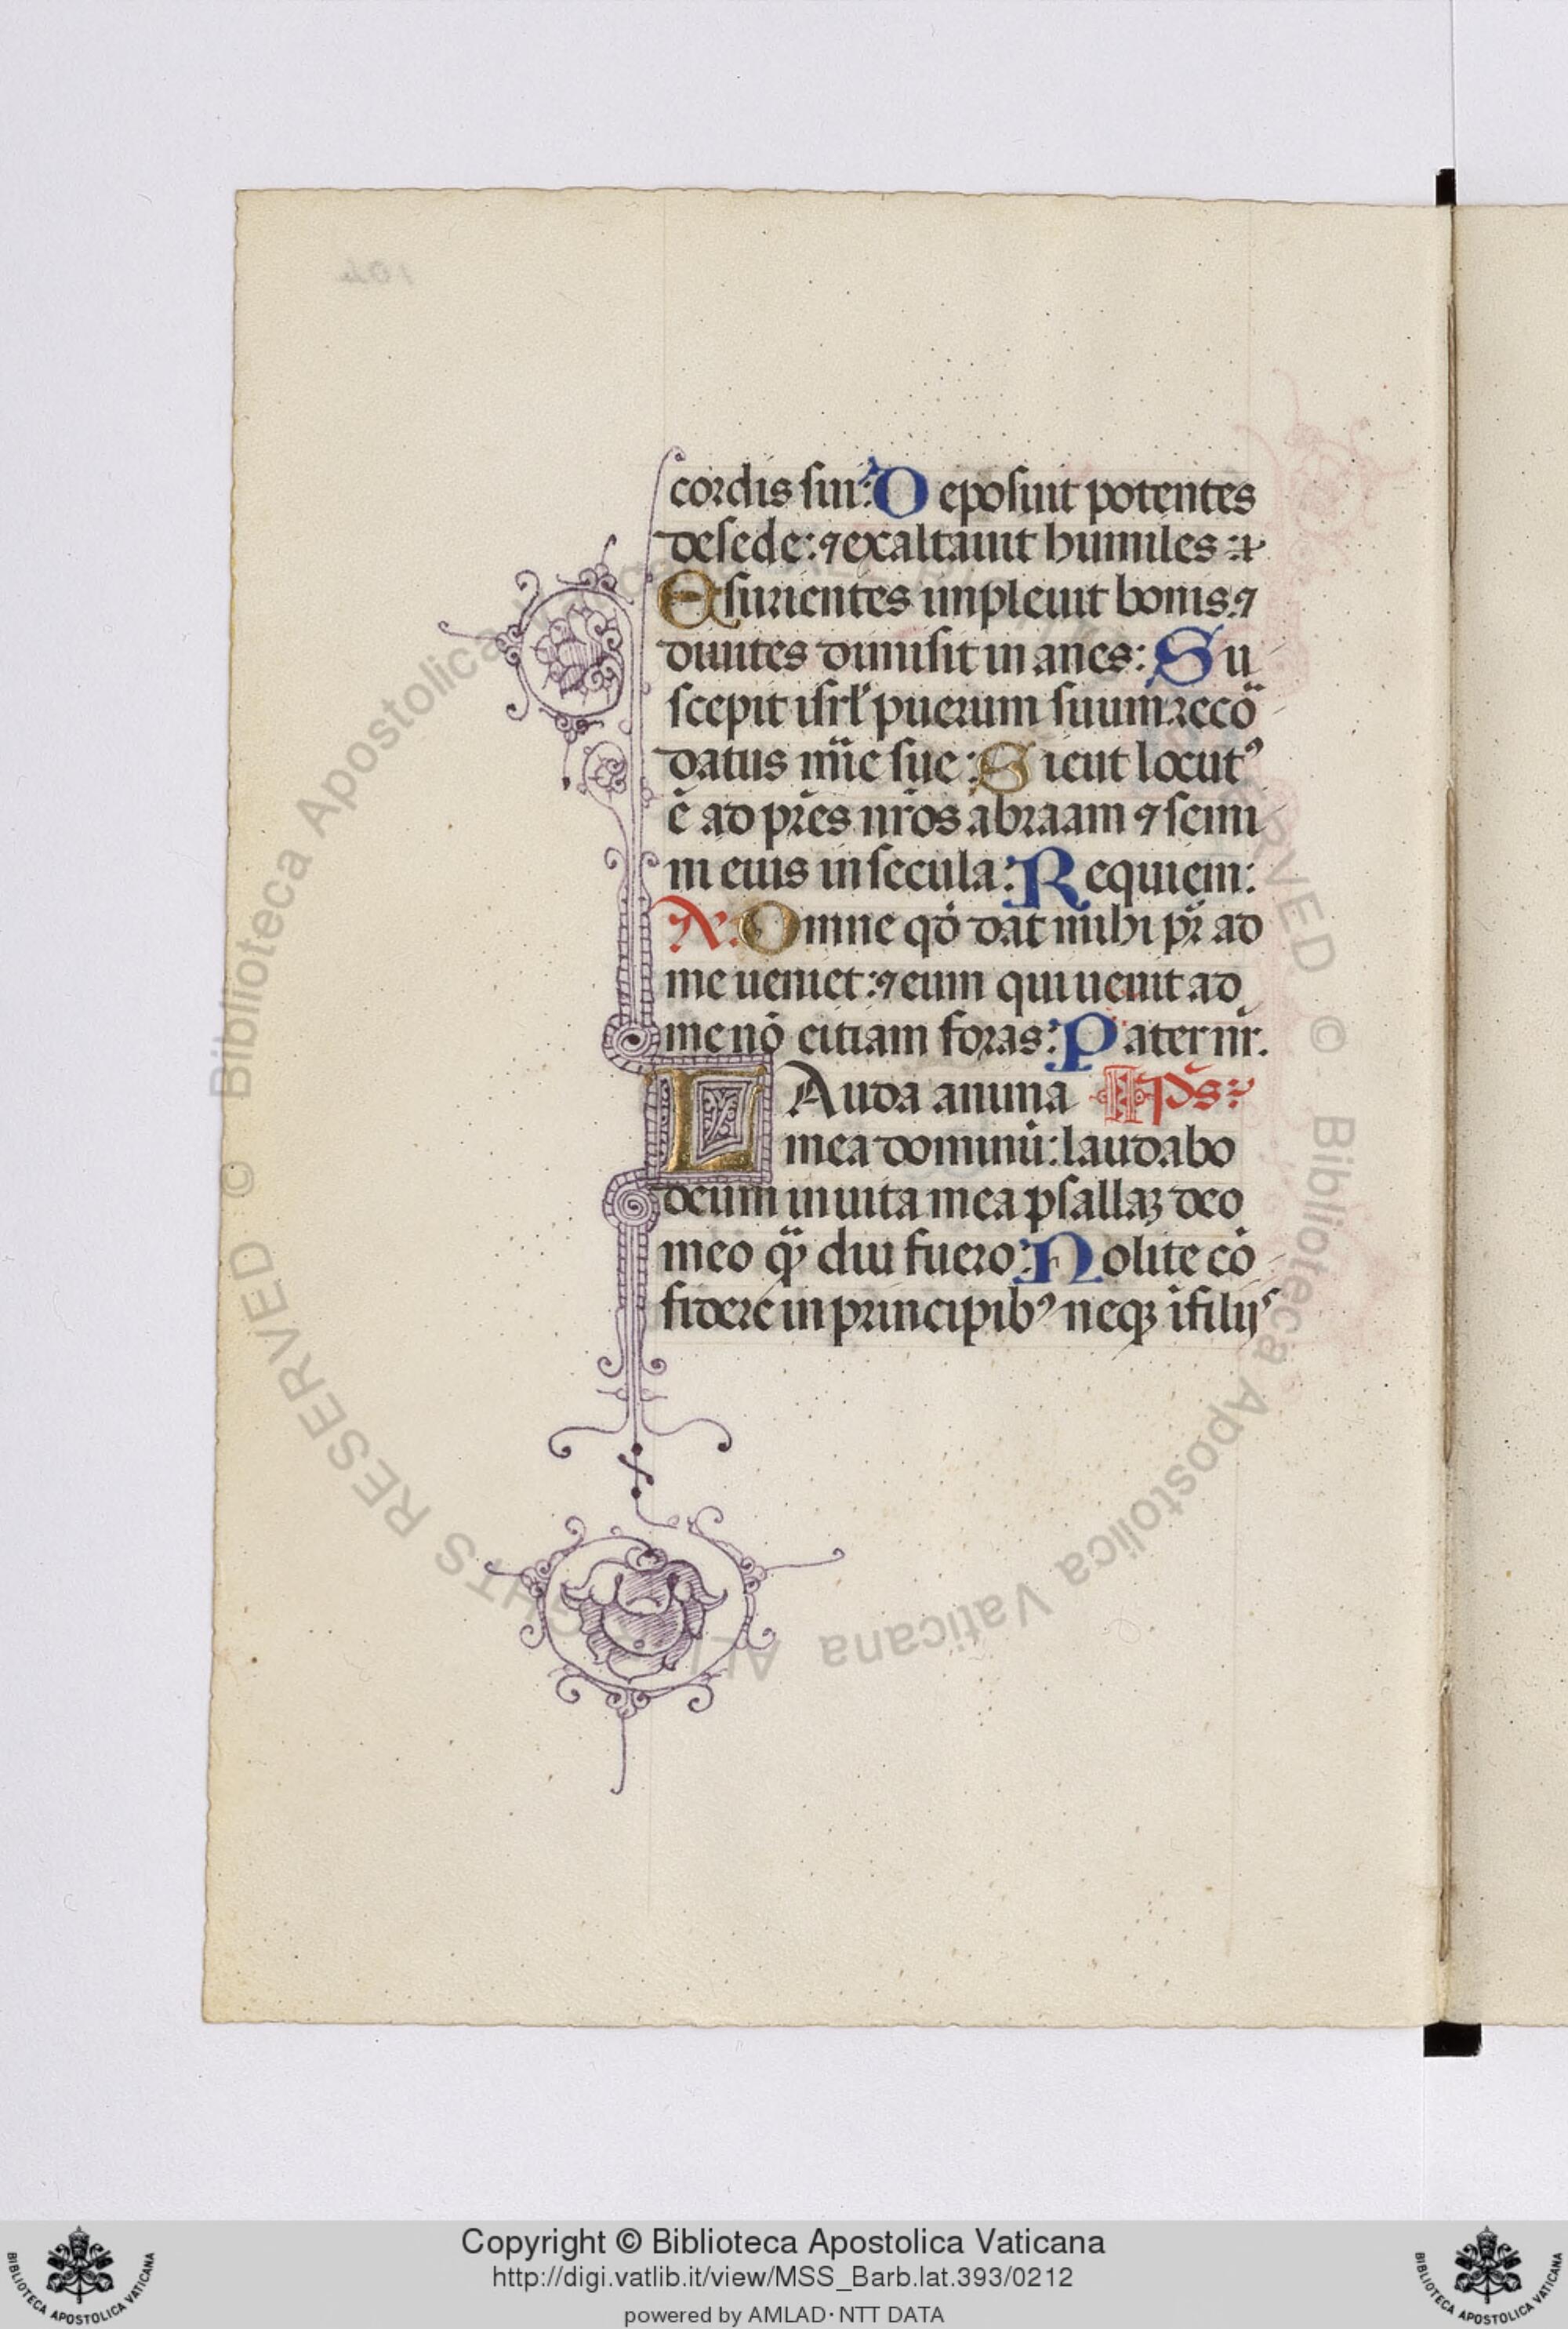 104
cordis sui: Deposuit potentes
de sede: ⁊ exaltauit humiles:
Esurientes impleuit bonis: ⁊
diuites dimisit in anes: Su
scepit isrl' puerum suum: recō
datus mīe sue: Sicut locutꝰ
ē ad pr̄es nr̄os abraam ⁊ semi
ni eius in secula: Requiem:
A. Omne qō dat mihi pr̄ ad
me ueniet: ⁊ eum qui uenit ad
me nō eitiam foras: Pater nr̄.
Lauda anima Ps
mea dominū: laudabo
deum in uita mea psallaꝫ deo
meo qͣ diu fuero: Nolite cō
fidere in principibꝰ neqꝫ ī filijs
© Biblioteca Apostolica Vaticana ALL RIGHTS RESERVED © Biblioteca Apostolica Vaticana
BIBLIOTECA APOSTOLICA VATICANA
Copyright © Biblioteca Apostolica Vaticana
http://digi.vatlib.it/view/MSS_Barb.lat.393/0212
powered by AMLAD · NTT DATA
BIBLIOTECA APOSTOLICA VATICANA